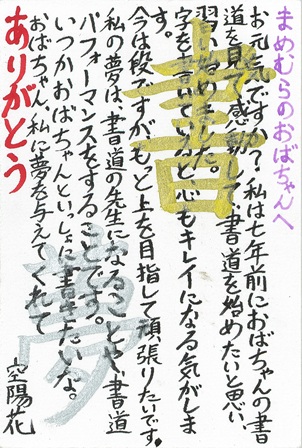 まめむらのおばちゃんへ
お元気ですか？私は七年前におばちゃんの書
道を見て感動して書道を始めたいと思い、
習い始めました。
字を書いていると心もキレイになる気がしま
す。
今は段ですがもっと上を目指して頑張りたいです。
私の夢は、書道の先生になることや、書道
パフォーマンスをすることです。
いつかおばちゃんといっしょに書きたいな。
おばちゃん、私に夢を与えてくれて
ありがとう
空陽花
書
夢